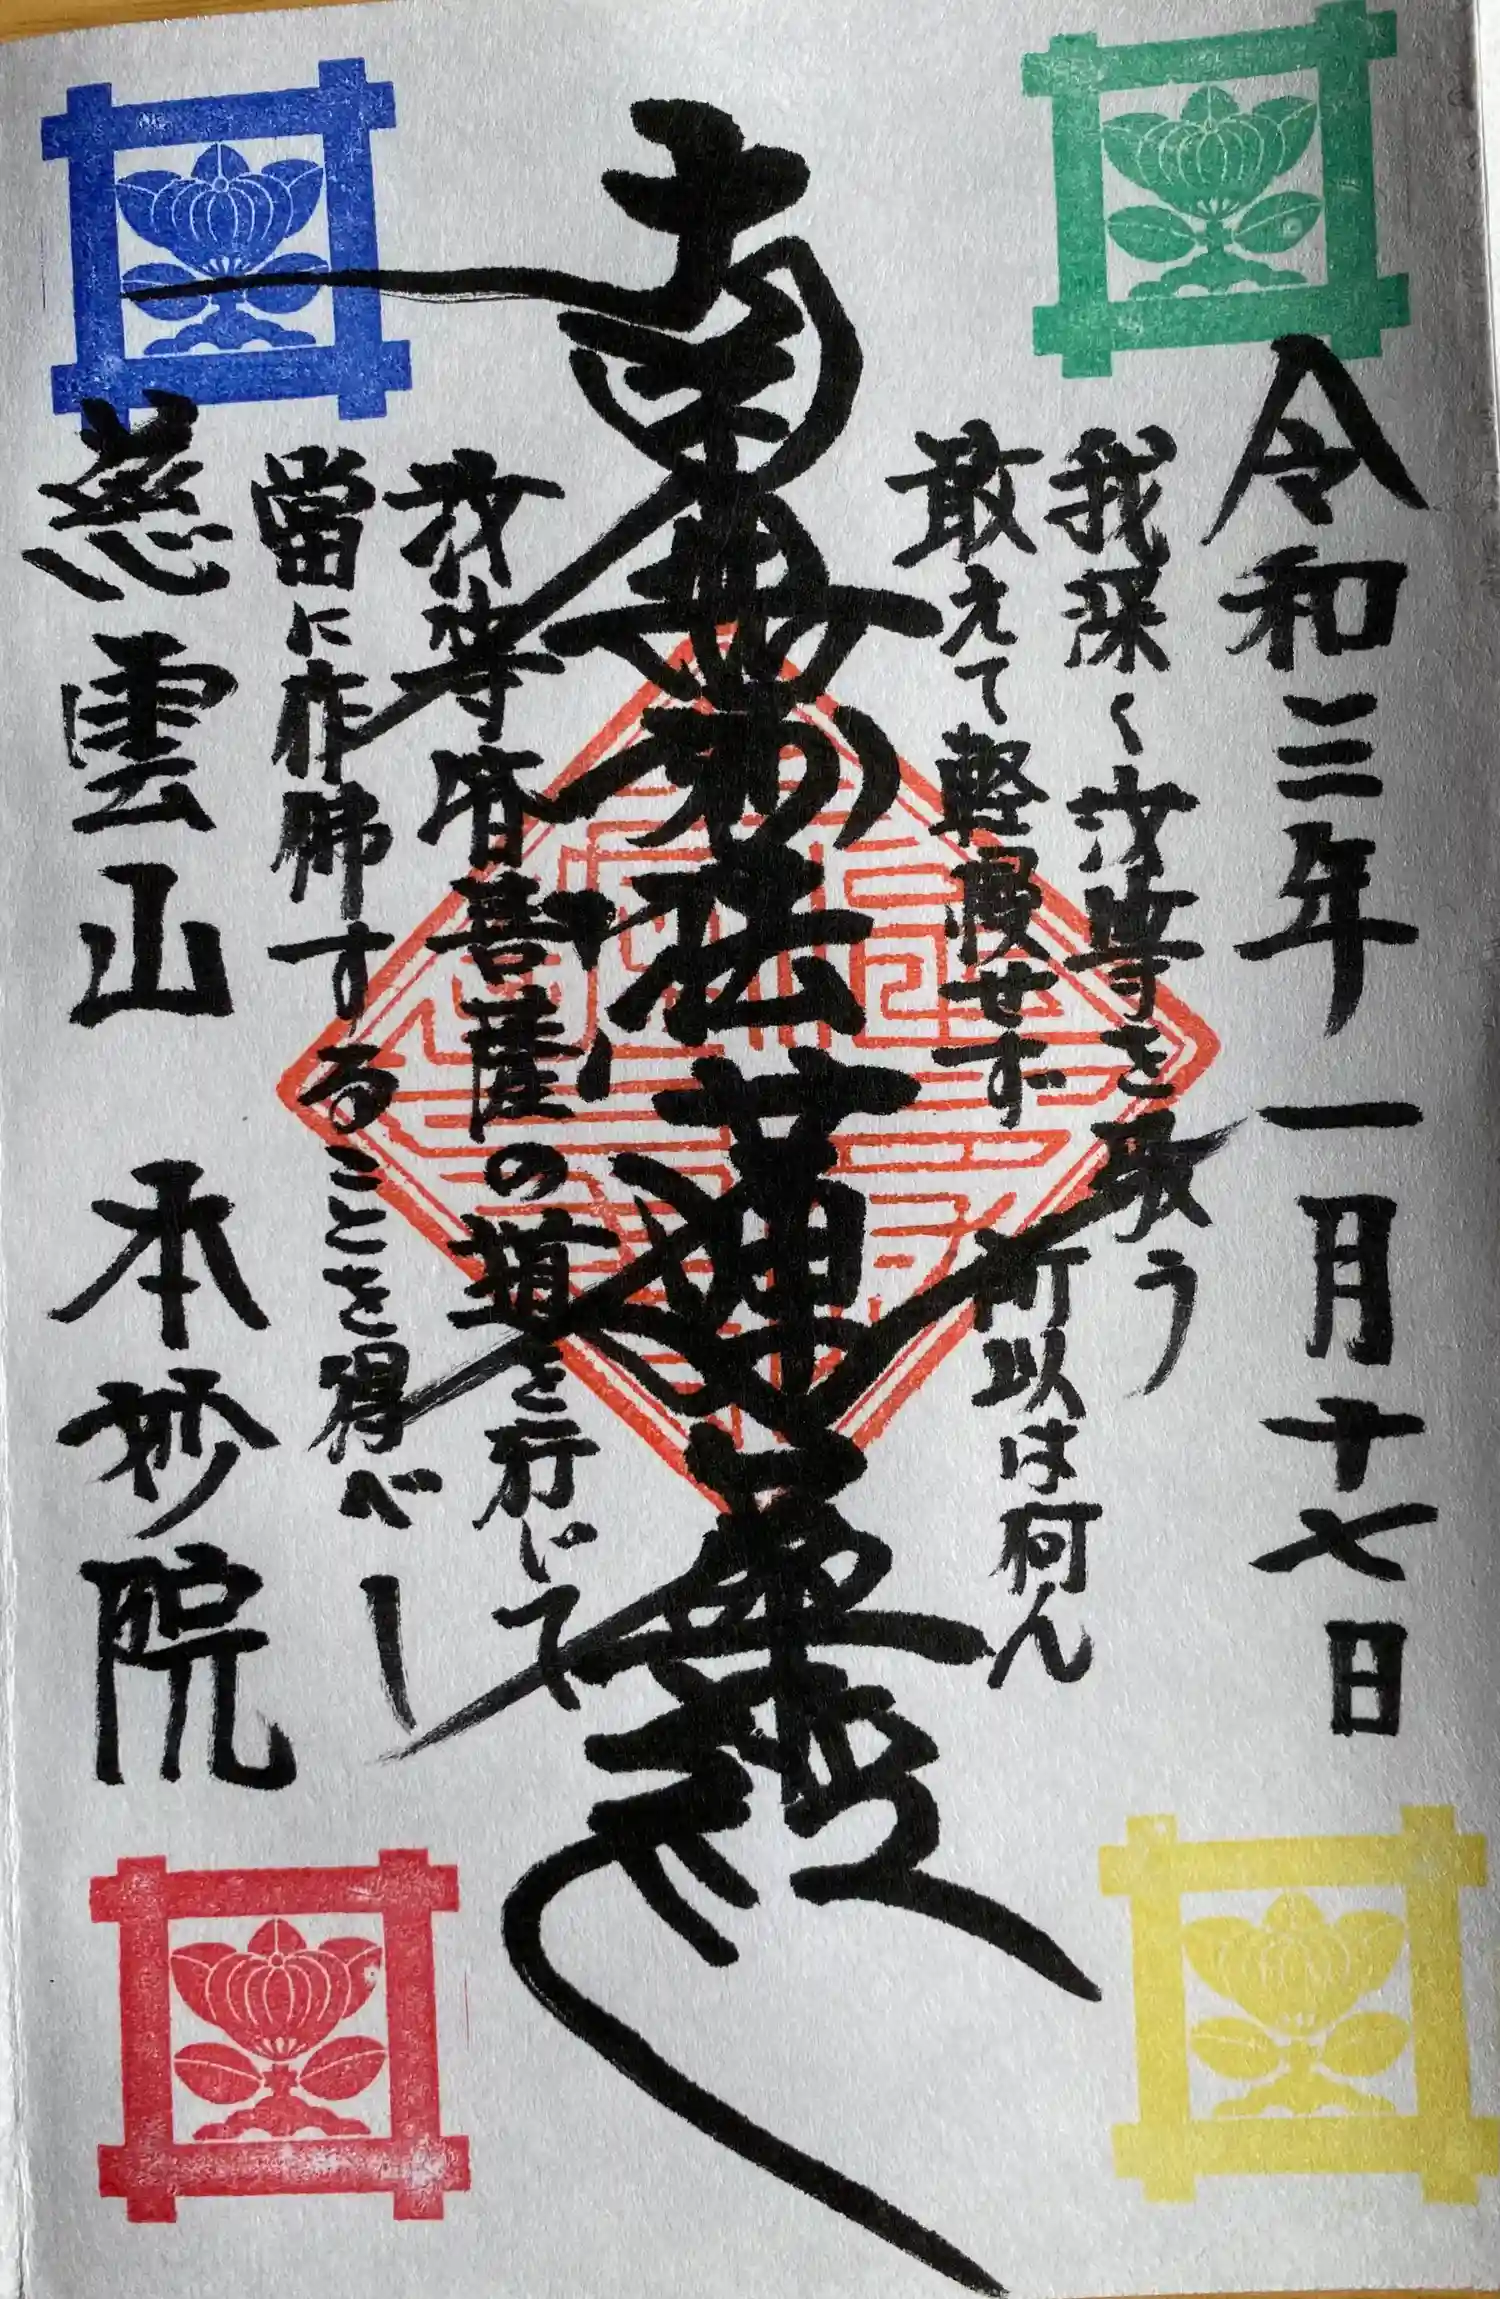 令和三年一月十七日
我深く汝等を敬う
敢えて軽慢せず所以は何ん
南無妙法蓮華経
汝等皆菩薩の道を行じて
當に作佛することを得べし
慈雲山 本妙院